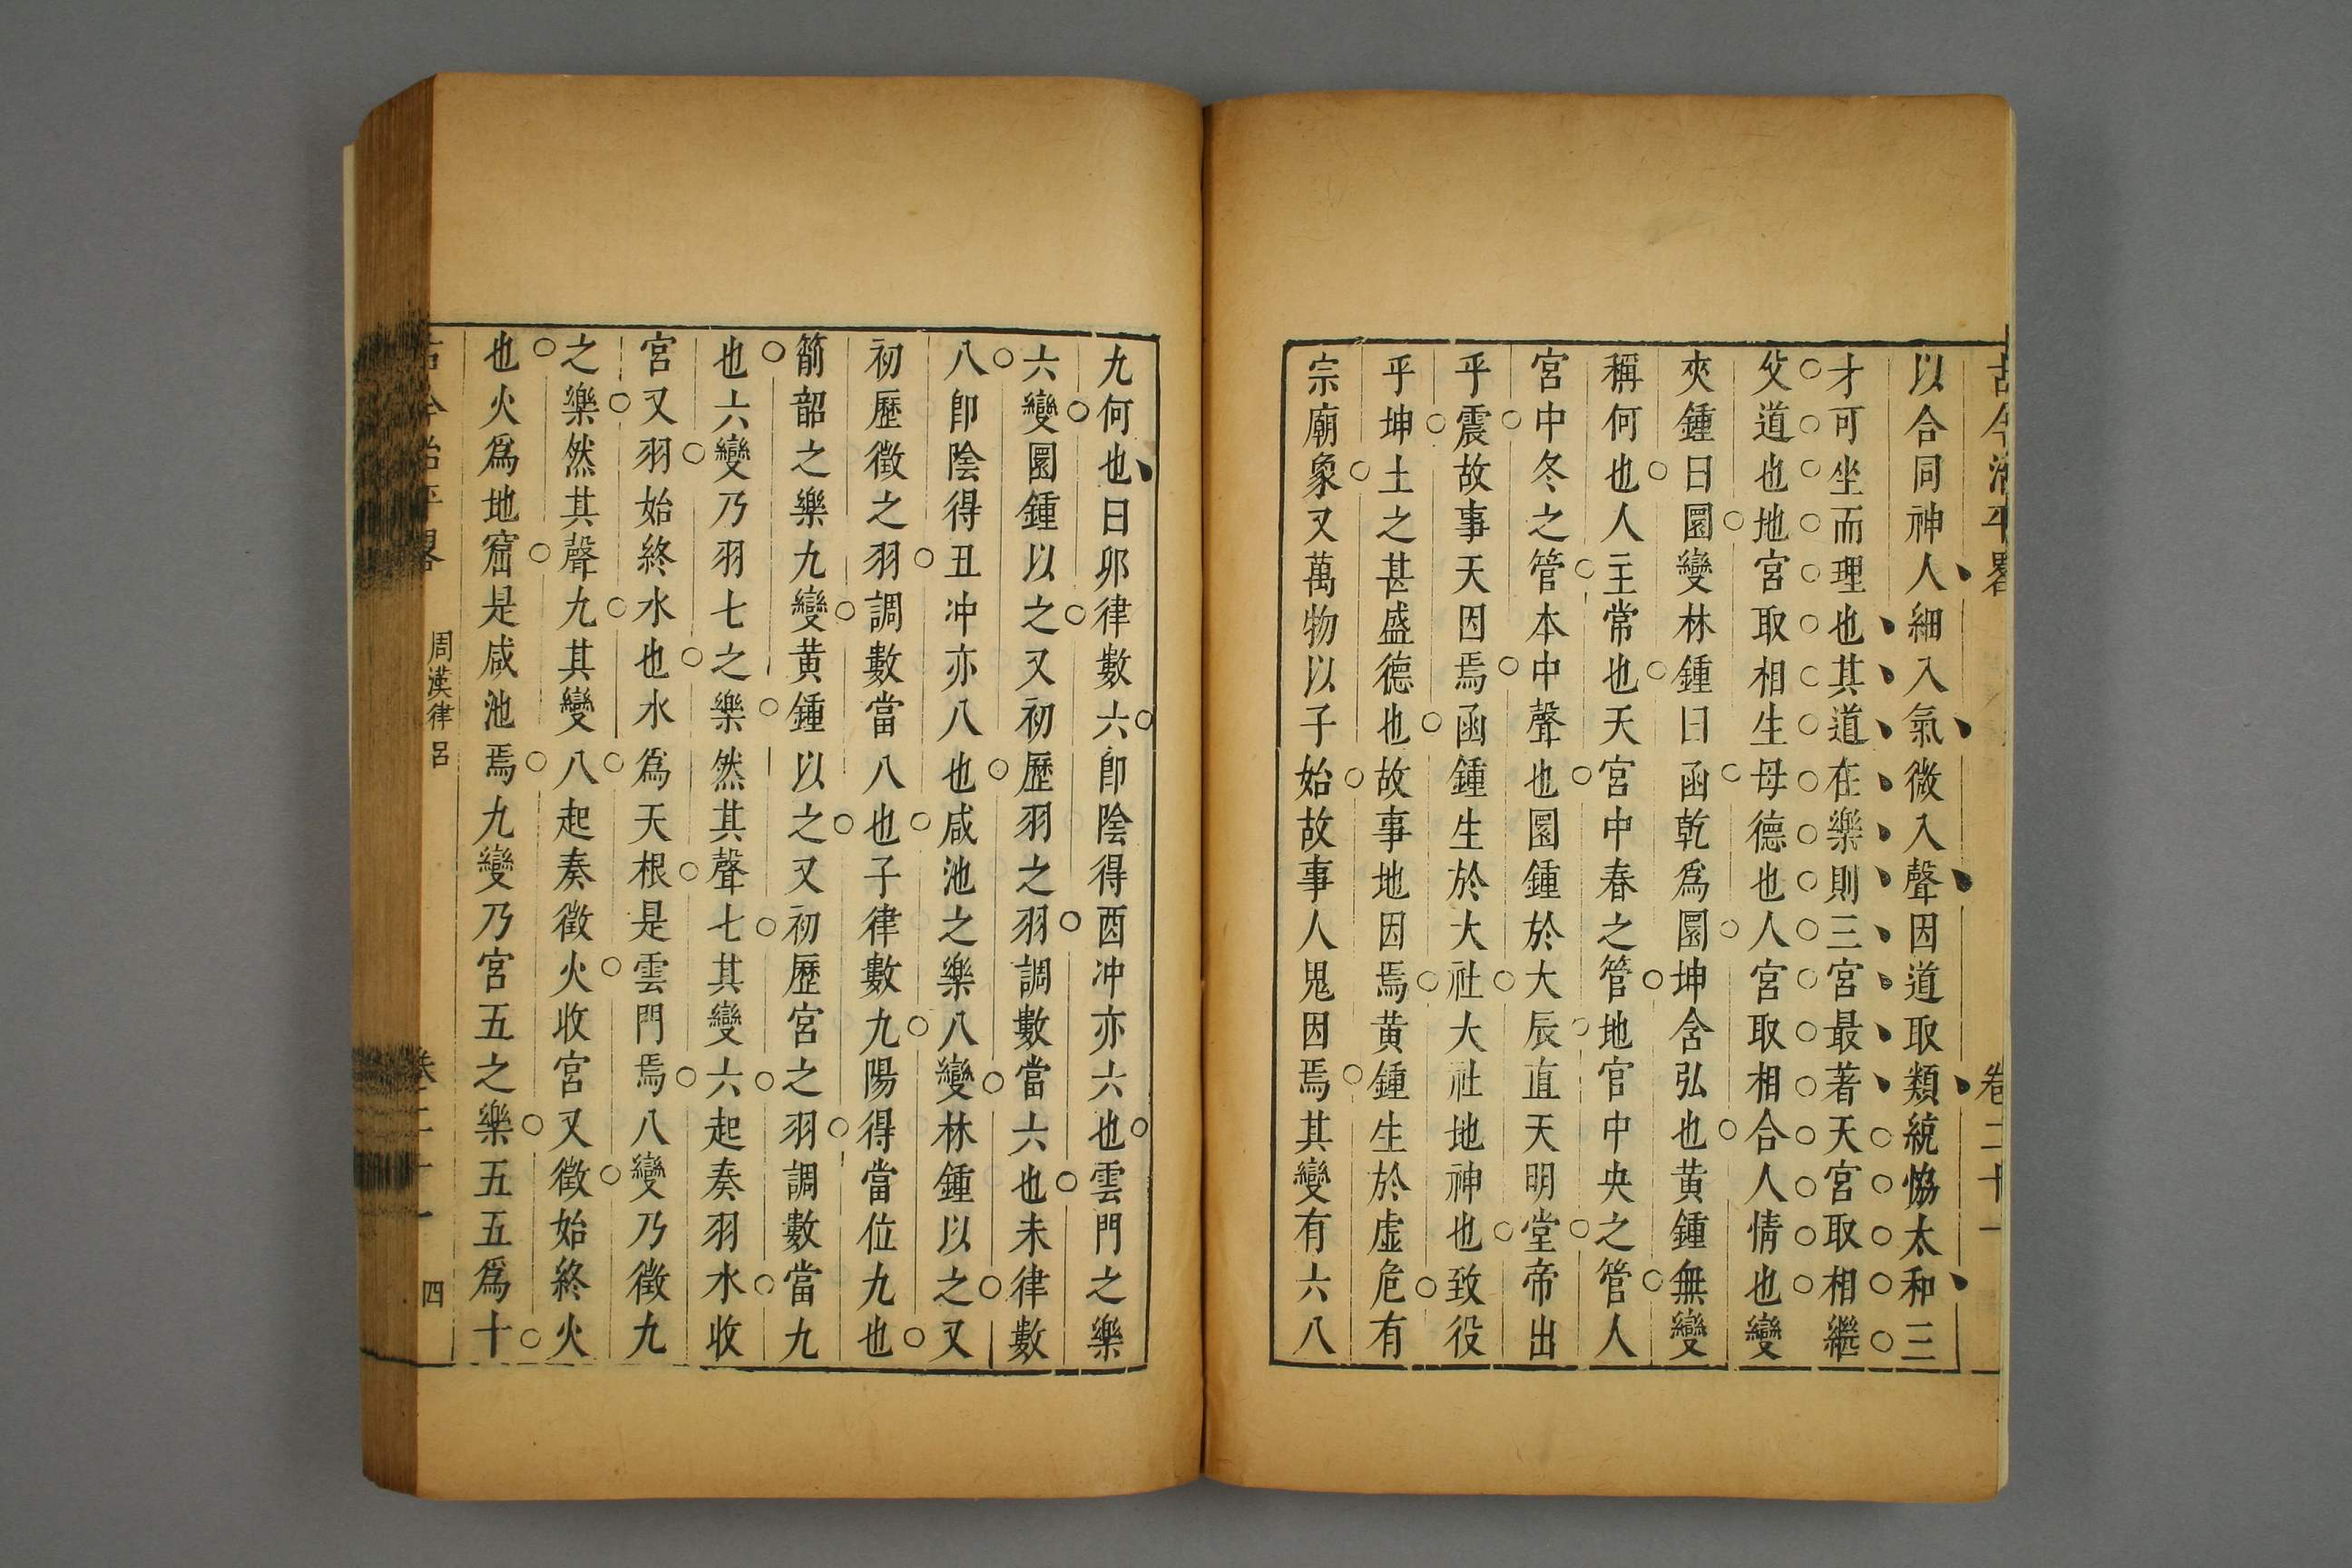 古今治平畧 卷二十一
以合同神人細入氣微入聲因道取類統恊太和三
才可坐而理也其道在樂則三宮最著天宮取相繼
父道也地宮取相生母德也人宮取相合人情也變
夾鍾曰圜變林鍾曰函乾爲圜坤含弘也黄鍾無變
稱何也人主常也天宮中春之管地官中央之管人
宮中冬之管本中聲也圜鍾於大辰直天明堂帝出
乎震故事天因焉函鍾生於大社大社地神也致役
乎坤土之甚盛德也故事地因焉黄鍾生於虛危有
宗廟象又萬物以子始故事人鬼因焉其變有六八
九何也曰卯律數六卽陰得酉冲亦六也雲門之樂
六變圜鍾以之又初歷羽之羽調數當六也未律數
八卽陰得丑冲亦八也咸池之樂八變林鍾以之又
初歷徵之羽調數當八也子律數九陽得當位九也
箾韶之樂九變黄鍾以之又初歷宮之羽調數當九
也六變乃羽七之樂然其聲七其變六起奏羽水收
宮又羽始終水也水爲天根是雲門焉八變乃徵九
之樂然其聲九其變八起奏徵火收宮又徵始終火
也火爲地窟是咸池焉九變乃宮五之樂五五爲十
古今治平畧 周漢律呂 卷二十一 四